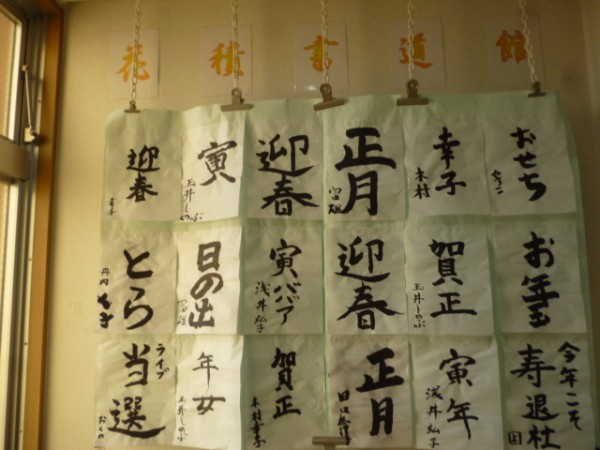 花積書道館
迎春
寅
玉井しのぶ
迎春
正月
幸子
木村
おせち
とら
日の出
寅ババア
浅井弘子
迎春
賀正
玉井しのぶ
お年玉
ライブ
当選
年女
玉井しのぶ
賀正
木村幸子
正月
寅年
浅井弘子
今年こそ
寿退社